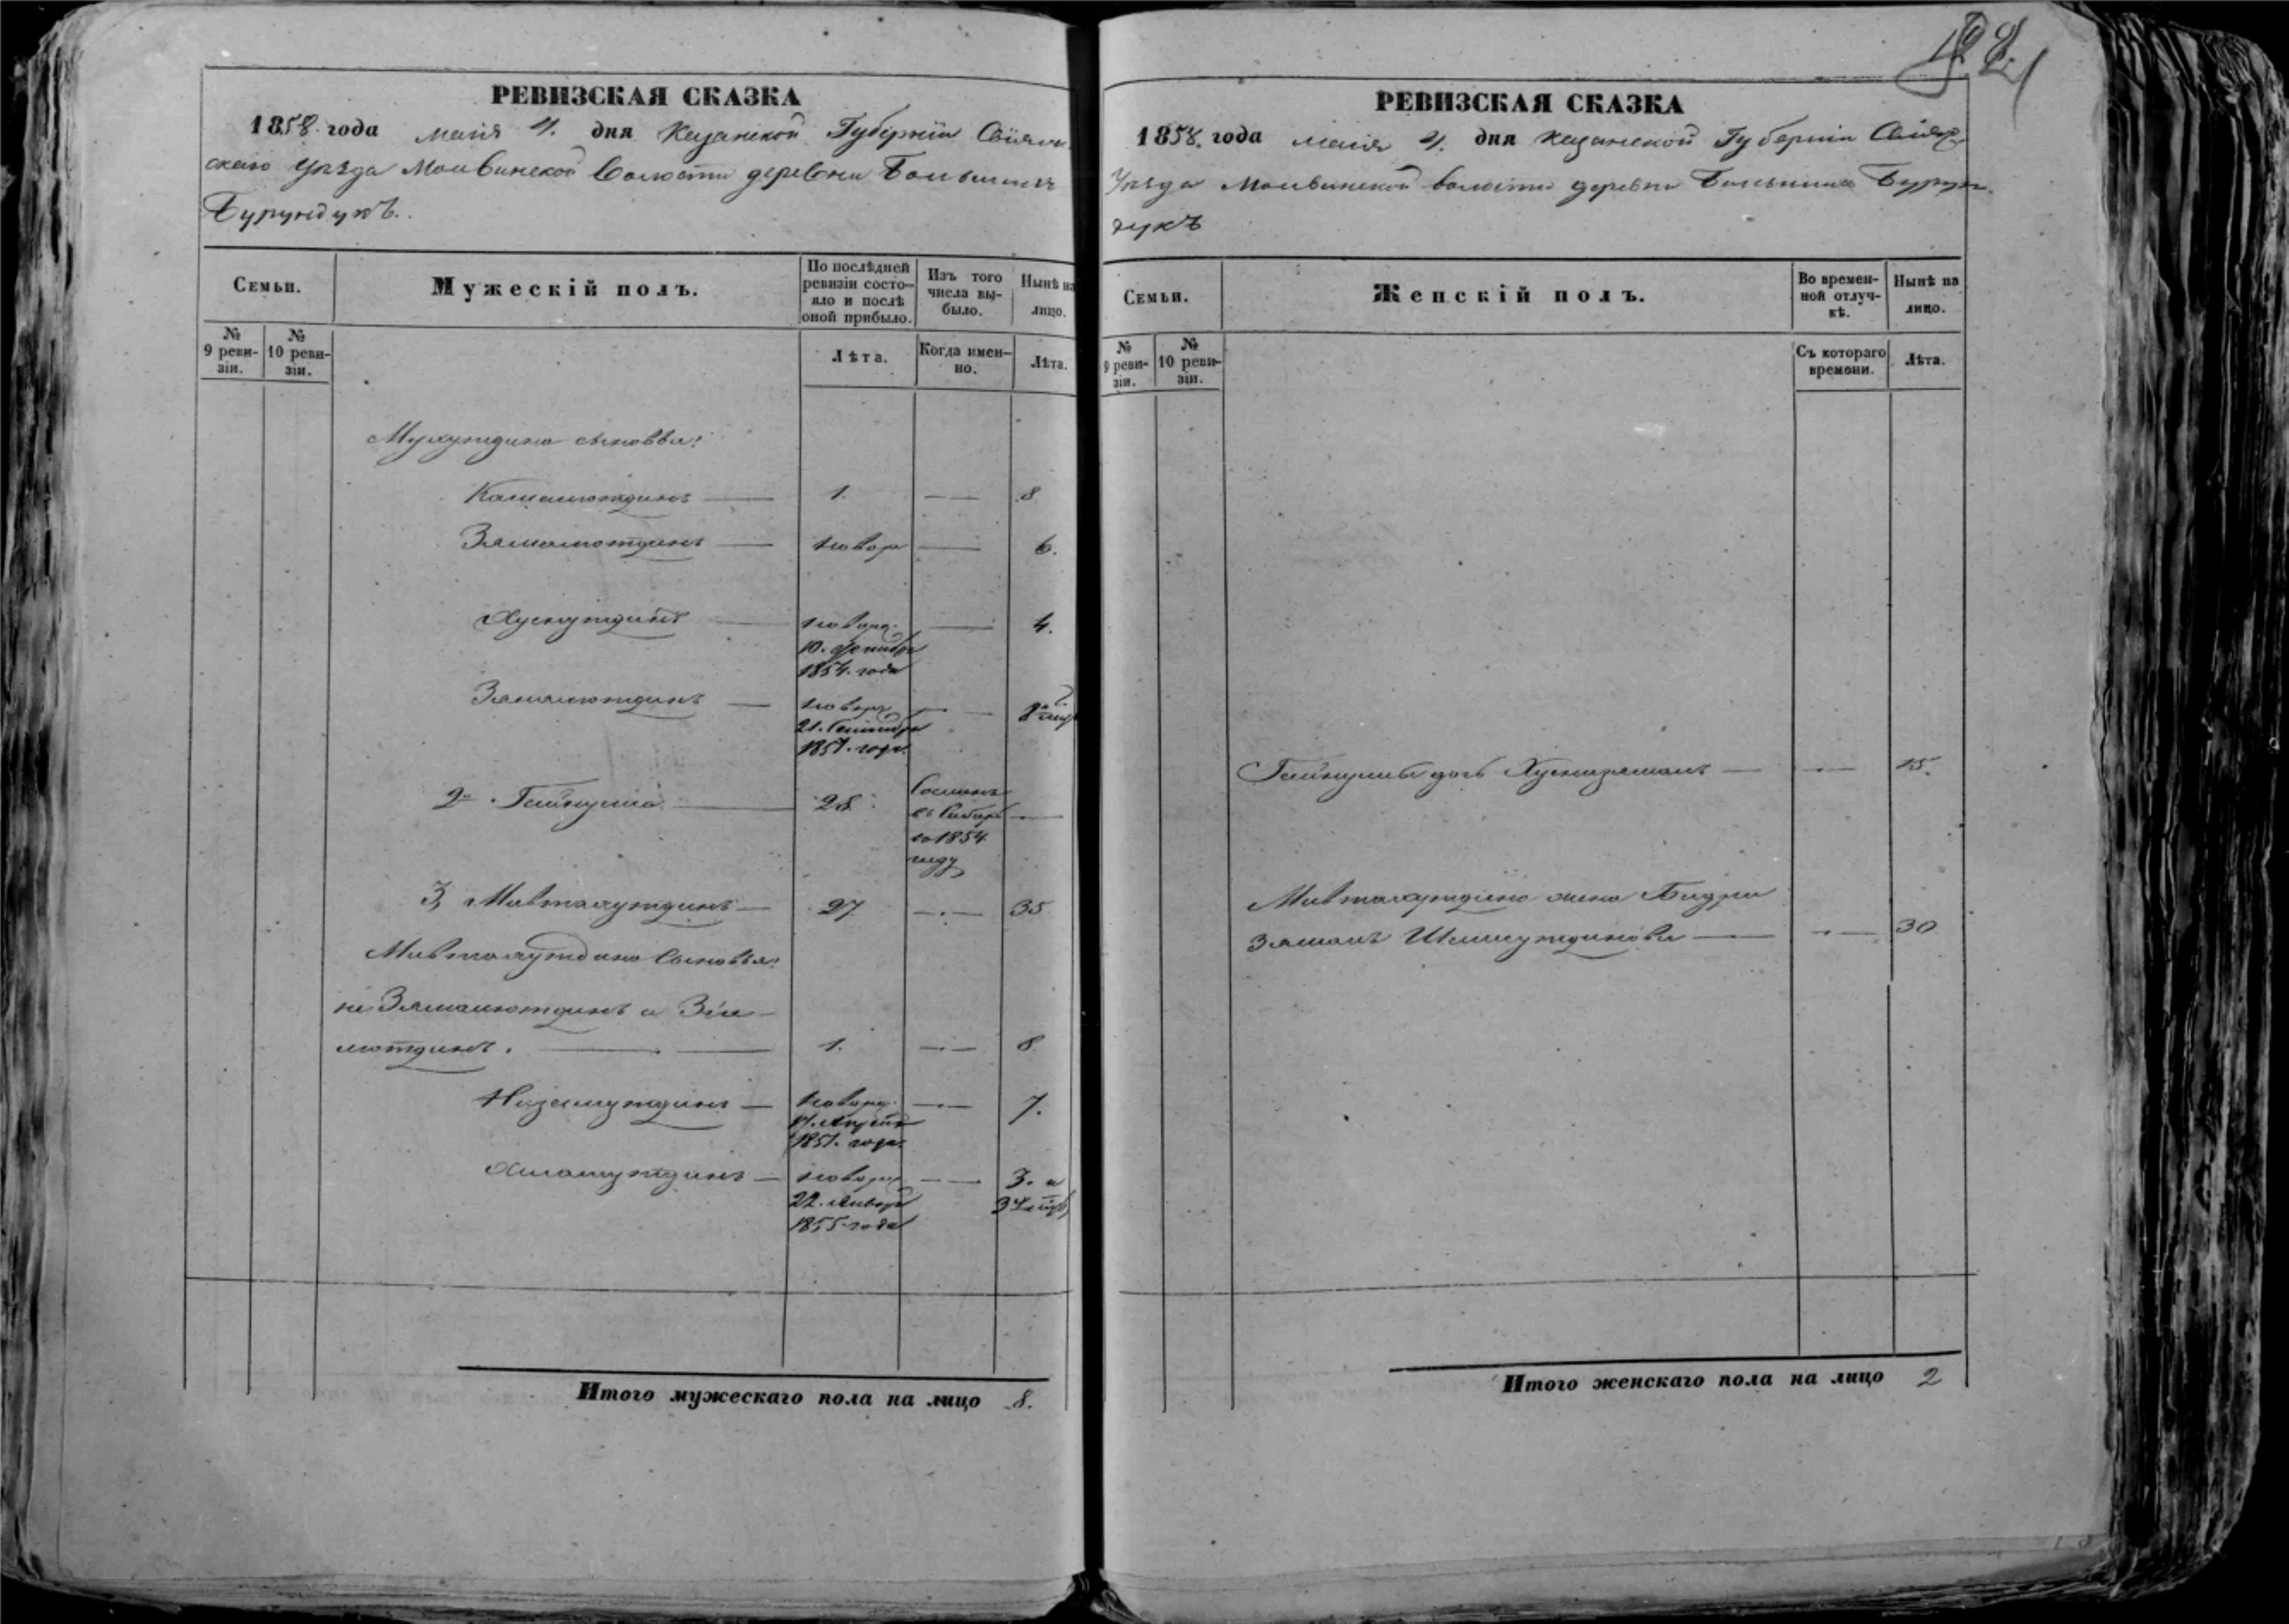 РЕВИЗСКАЯ СКАЗКА
1858 года маія 4. дня Казанской Губерніи Свіяж
скаго уѣзда Молвинской волости деревни Большихъ
Бурундукъ.
Семьи.
Мужескій полъ.
По послѣдней ревизіи состо-
яло и послѣ оной прибыло.
Изъ того числа вы-
было.
Нынѣ на лицо.
№ 9 реви-
зіи.
№ 10 реви-
зіи.
Лѣта.
Когда имен-
но.
Лѣта.
сыновья:
Камалютдинъ 1. 8
Зямалютдинъ новор 6.
Хуснутдинъ новоро. 4.
10.
1854. года
Замалютдинъ новор
21. Сентябр
1857. года
2й Гайнулла 28 Сосланъ
въ Сибирь
въ 1854
году
3, Мифтахутдинъ 27 35
Мифтахутдина сыновья:
1й Зямалютдинъ и Зія-
лютдинъ. 1. 8.
Низамутдинъ новоро. 7.
Апреля
1851. года
новоро 3. и
22. Января
1855 года
Итого мужескаго пола на лицо 8.
РЕВИЗСКАЯ СКАЗКА
1858. года маія 4. дня Казанской Губерніи Свіяж.
Уѣзда Молвинской волости деревни Большихъ Бурун
дукъ
Семьи.
Женскій полъ.
Во времен-
ной отлуч-
кѣ.
Нынѣ на лицо.
№ 9 реви-
зіи.
№ 10 реви-
зіи.
Съ котораго времени.
Лѣта.
Гайнуллы дочь Хуснизямалъ 15.
Мифтахутдина жена Бадри
зямалъ 30
Итого женскаго пола на лицо 2